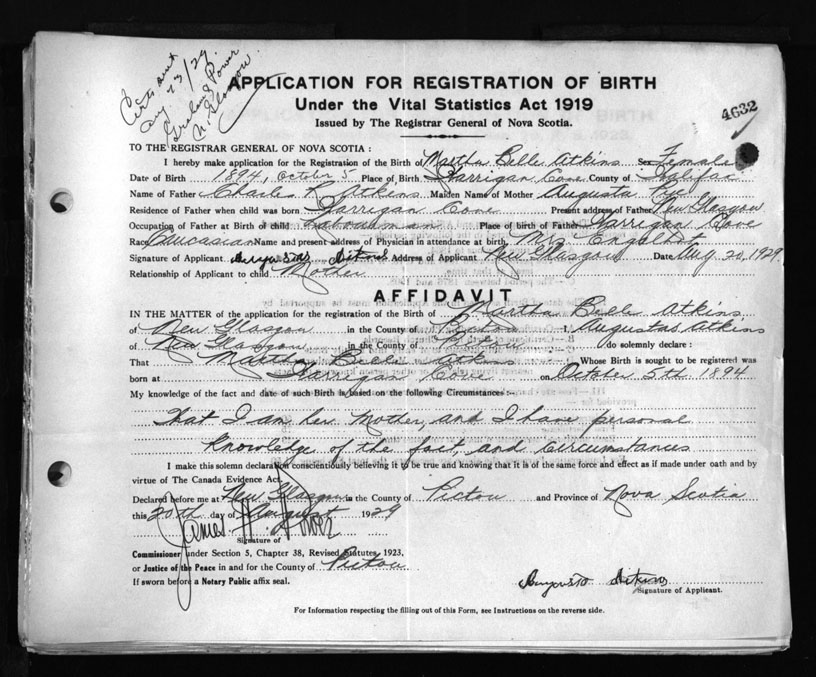 Aug 23/29
4632
APPLICATION FOR REGISTRATION OF BIRTH
Under the Vital Statistics Act 1919
Issued by The Registrar General of Nova Scotia.
TO THE REGISTRAR GENERAL OF NOVA SCOTIA :
I hereby make application for the Registration of the Birth of Martha Belle Atkins Sex Female
Date of Birth 1894, October 5 Place of Birth Harrigan Cove County of Halifax
Name of Father Charles R. Atkins Maiden Name of Mother Augusta
Residence of Father when child was born Harrigan Cove Present address of Father New Glasgow
Occupation of Father at Birth of child Place of birth of Father Harrigan Cove
Race Caucasian Name and present address of Physician in attendance at birth Mrs Engelhat
Signature of Applicant Augusta Atkins Address of Applicant New Glasgow Date Aug 20, 1929.
Relationship of Applicant to child Mother
AFFIDAVIT
IN THE MATTER of the application for the registration of Birth of Martha Belle Atkins
of New Glasgow in the County of Pictou I, Augustas Atkins
of New Glasgow in the County of Pictou do solemnly declare :
That Martha Belle Atkins Whose Birth is sought to be registered was
born at Harrigan Cove on October 5th 1894
My knowledge of the fact and date of such Birth is based on the following Circumstances :-
That I am her Mother, and I have personal
knowledge of the fact, and circumstances
I make this solemn declaration conscientiously believing it to be true and knowing that it is of the same force and effect as if made under oath and by
virtue of The Canada Evidence Act.
Declared before me at New Glasgow in the County of Pictou and Province of Nova Scotia
this 20th day of August 1929
James H. Power
Signature of
Commissioner under Section 5, Chapter 38, Revised Statutes, 1923,
or Justice of the Peace in and for the County of Pictou
If sworn before a Notary Public affix seal.
Augusta Atkins
Signature of Applicant.
For Information respecting the filling out of this Form, see Instructions on the reverse side.